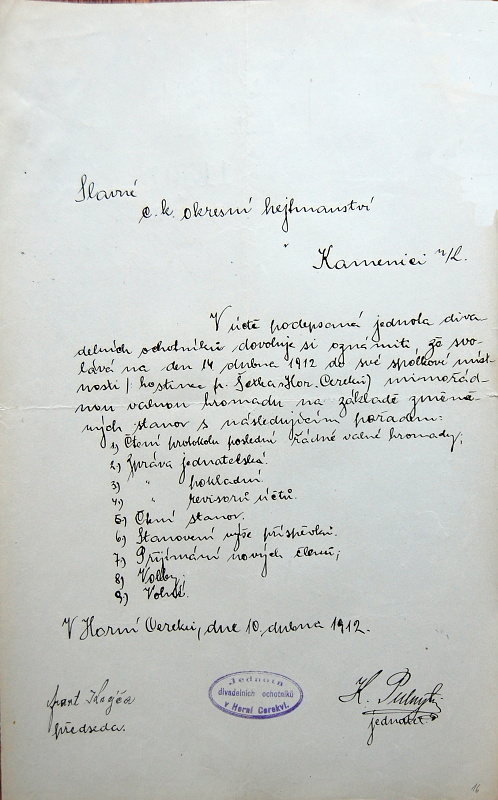 Slavné
c. k. okresní hejtmanství
v
Kamenici n/L.
V úctě podepsaná jednota diva-
delních ochotníků dovoluje si oznámiti, že svo-
lává na den 14 dubna 1912 do své spolkové míst-
nosti / hostinec p. Hor. Cerekvi) mimořád-
nou valnou hromadu na základě změně-
ných stanov s následujícím pořadem:
1) Čtení protokolu poslední řádné valné hromady;
2.) Zpráva jednatelská.
3) " pokladní.
4.) " revisorů účtů.
5.) Čtení stanov.
6) Stanovení výše příspěvků.
7.) Přijímání nových členů;
8) Volby;
9.) Volné.
V Horní Cerekvi, dne 10. dubna 1912.
Jednota
divadelních ochotníků
v Horní Cerekvi.
frant
předseda.
K.
jednatel
16